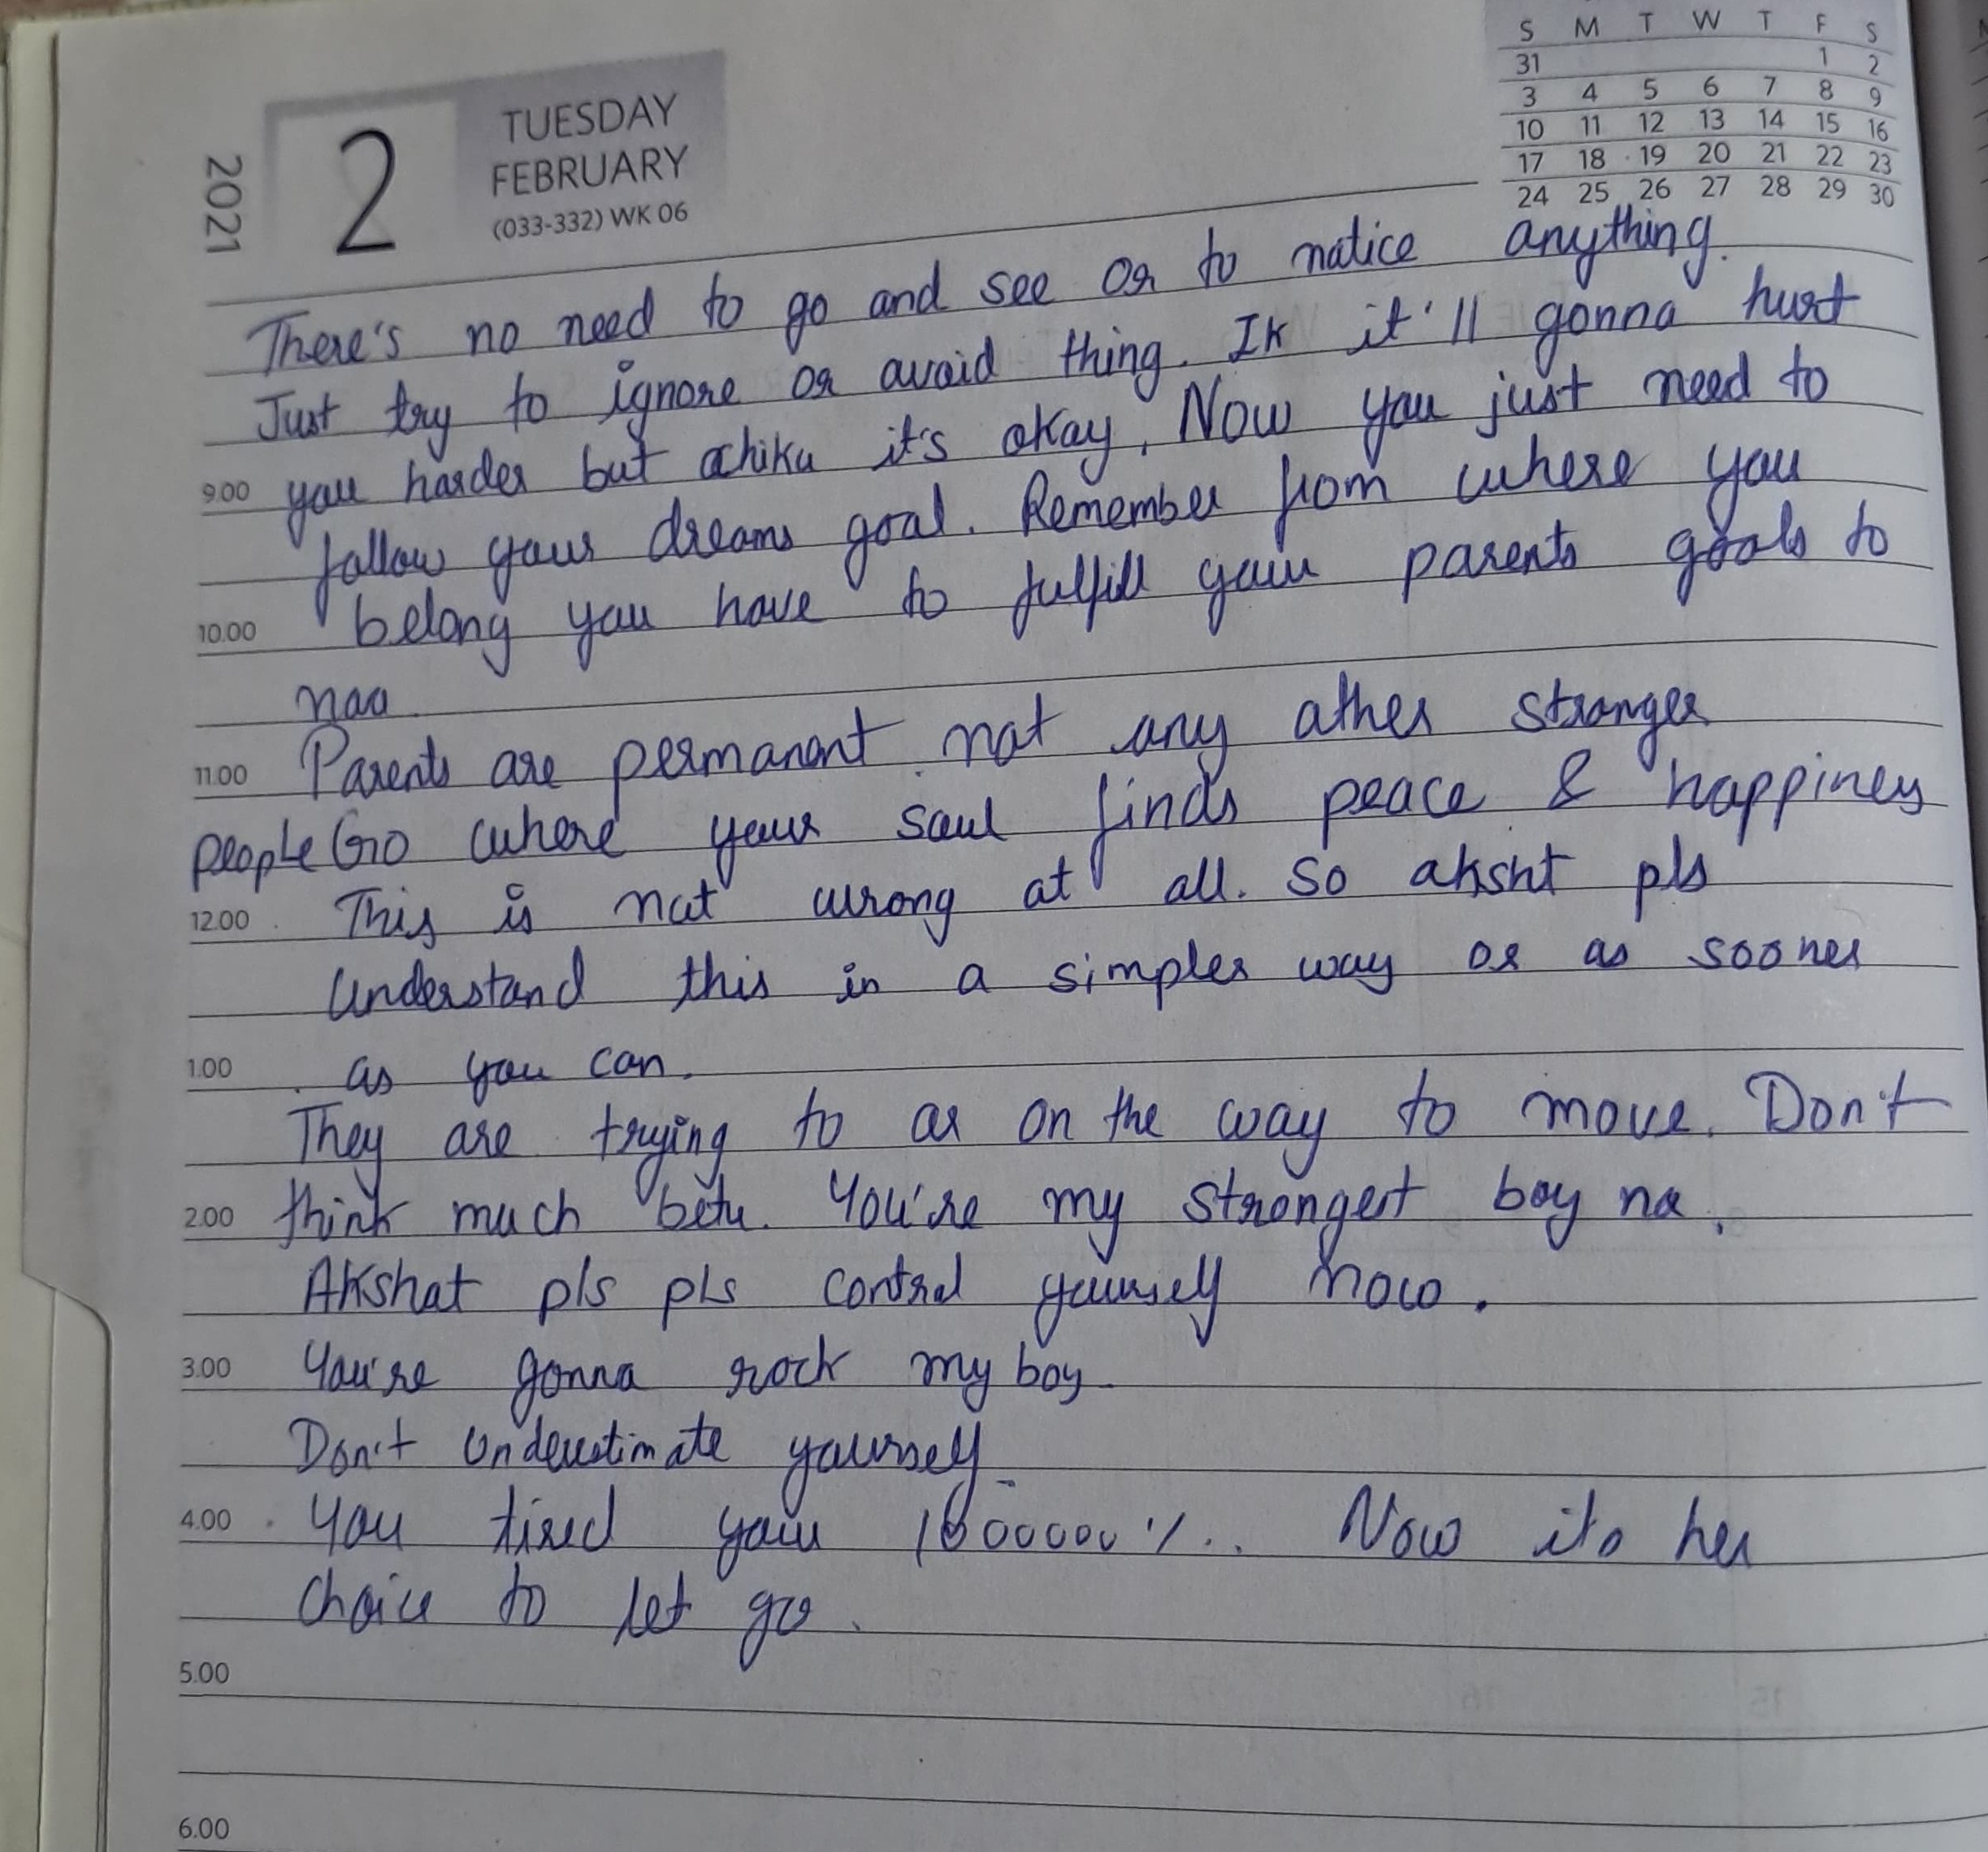 2021
2
TUESDAY
FEBRUARY
(033-332) WK 06
S M T W T F S
31 1 2
3 4 5 6 7 8 9
10 11 12 13 14 15 16
17 18 19 20 21 22 23
24 25 26 27 28 29 30
There's no need to go and see or to notice anything.
Just try to ignore or avoid thing. Ik it'll gonna hurt
9.00 you harder but chiku it's okay. Now you just need to
follow your dreams goal. Remember from where you
10.00 belong you have to fulfill your parents goals to
naa
11.00 Parents are permanent not any other stranger
people Go where your soul finds peace & happiness
12.00 This is not wrong at all. So aksht pls
Understand this in a simpler way or as sooner
1.00 as you can.
They are trying to or on the way to move. Don't
2.00 think much betu. You're my strongest boy na.
Akshat pls pls control yourself now.
3.00 You're gonna rock my boy.
Don't Underestimate yourself
4.00 You tired your 1000000%.. Now its her
choice to let go.
5.00
6.00